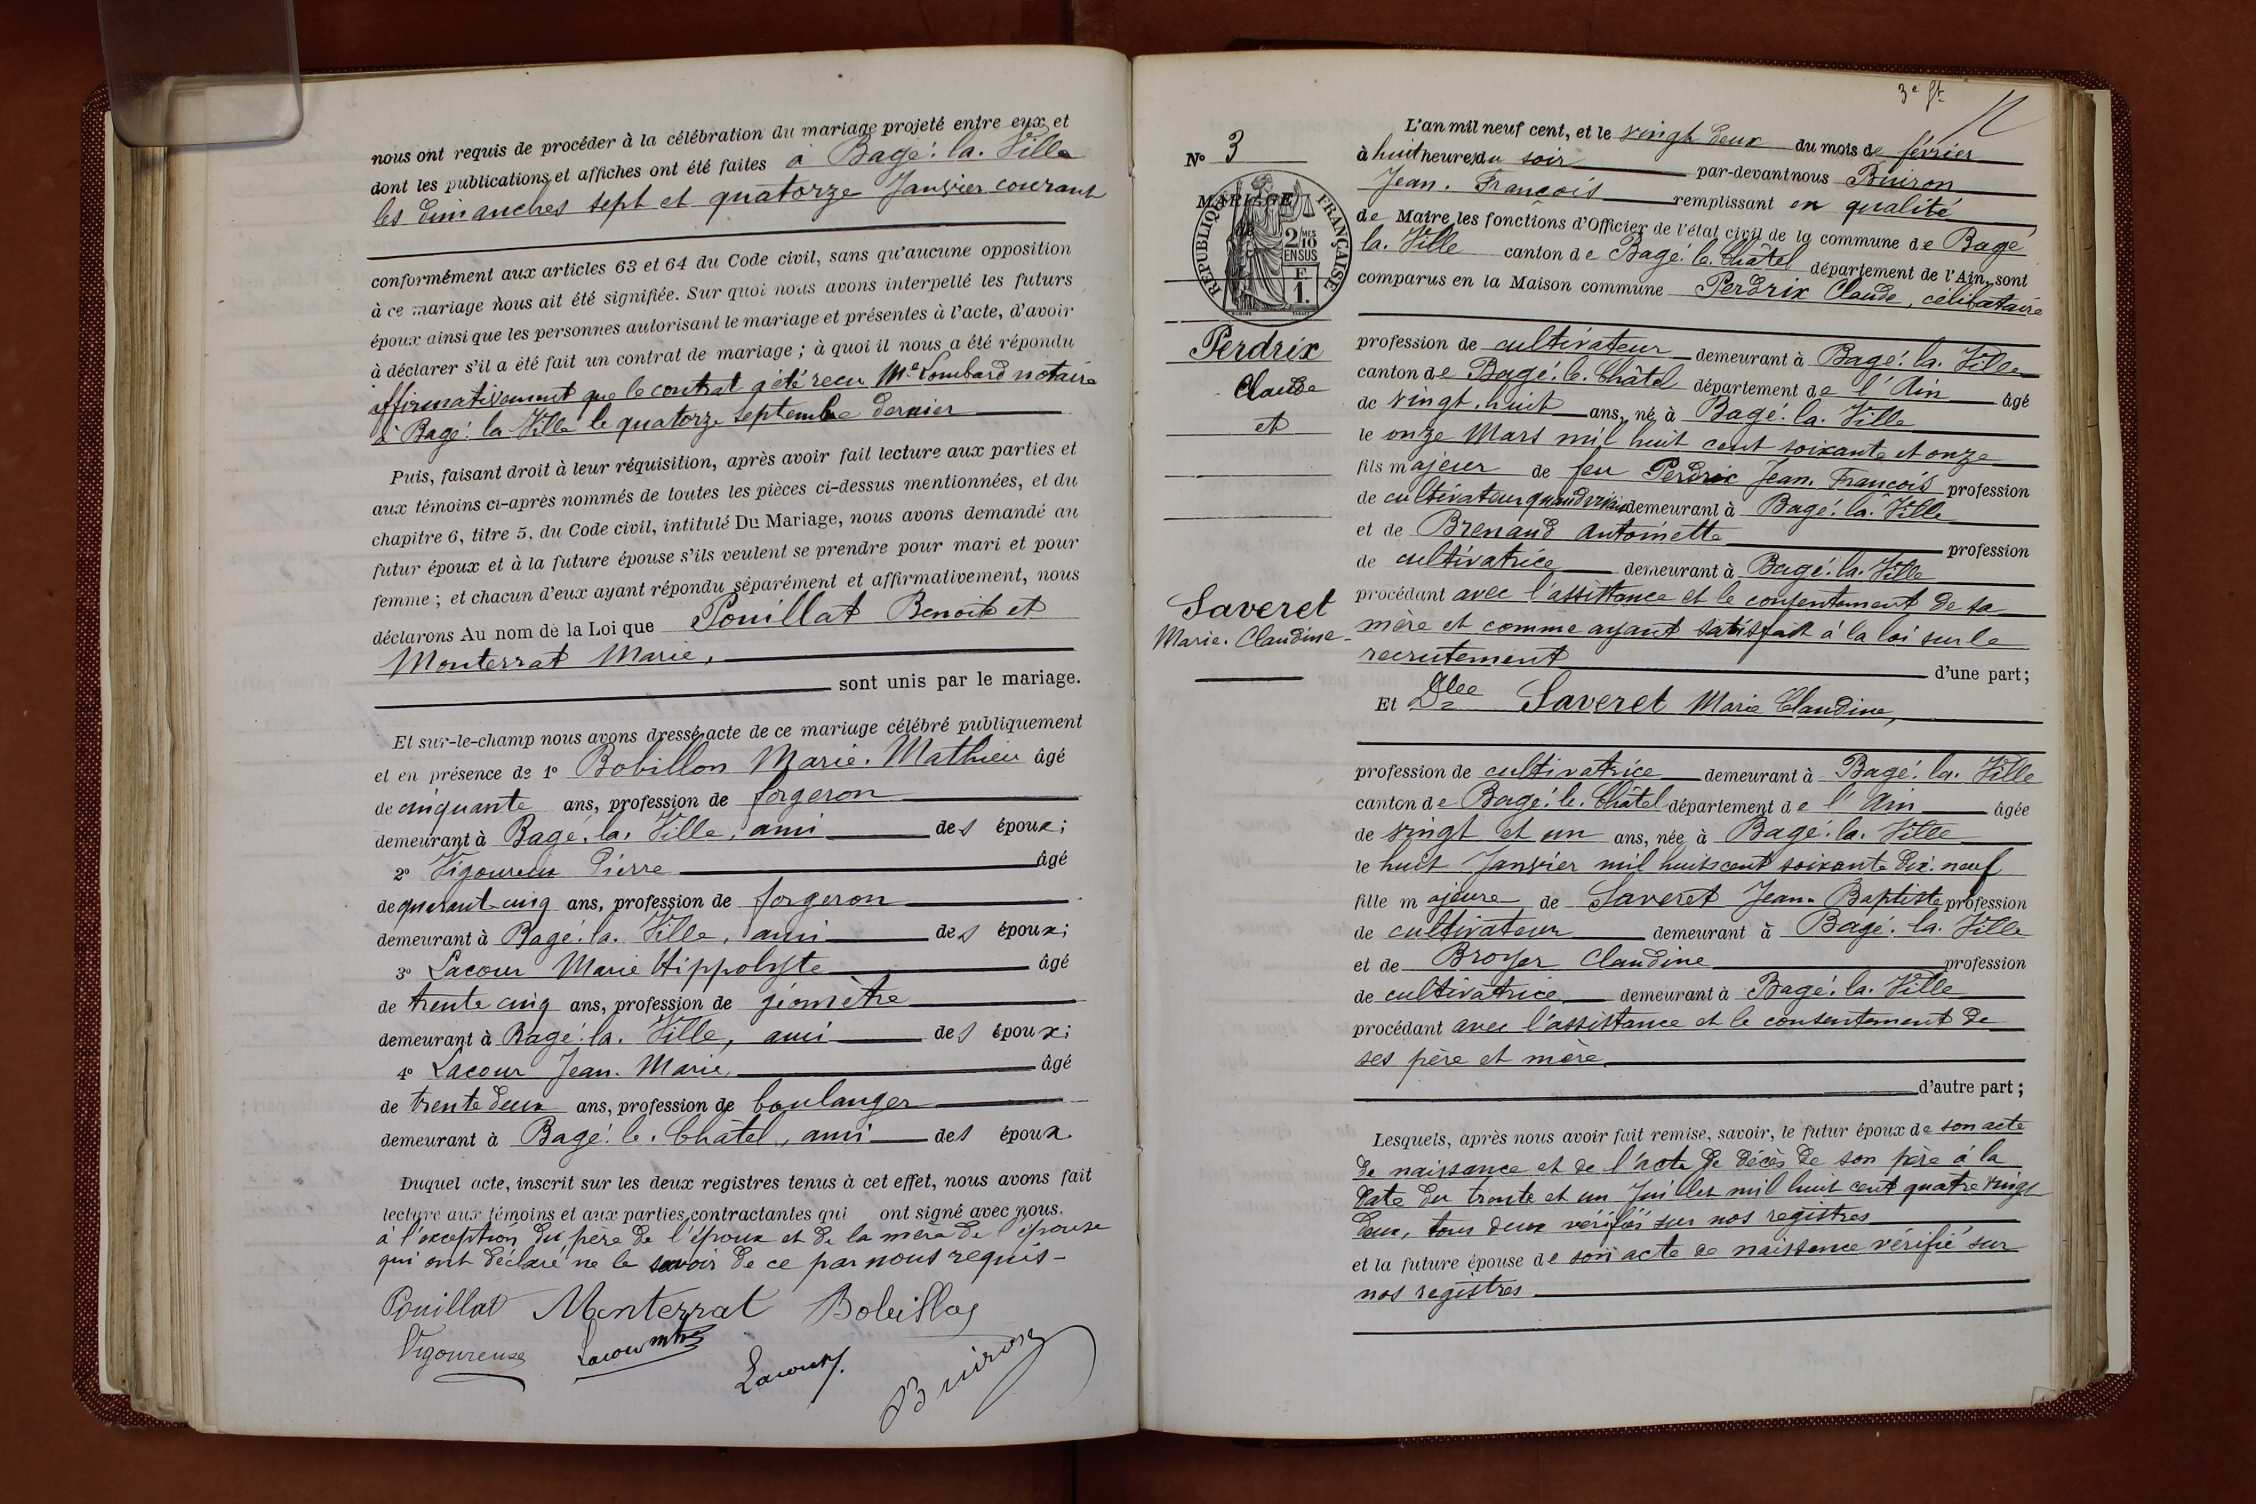 nous ont requis de procéder à la célébration du mariage projeté entre eux et
dont les publications et affiches ont été faites à Bagé. la. Ville
les dimanches sept et quatorze Janvier courant
conformément aux articles 63 et 64 du Code civil, sans qu'aucune opposition
à ce mariage nous ait été signifiée. Sur quoi nous avons interpellé les futurs
époux ainsi que les personnes autorisant le mariage et présentes à l'acte, d'avoir
à déclarer s'il a été fait un contrat de mariage ; à quoi il nous a été répondu
affirmativement que le contrat a été recu Me Lombard notaire
à Bagé. la Ville le quatorze Septembre dernier
Puis, faisant droit à leur réquisition, après avoir fait lecture aux parties et
aux témoins ci-après nommés de toutes les pièces ci-dessus mentionnées, et du
chapitre 6, titre 5, du Code civil, intitulé Du Mariage, nous avons demandé au
futur époux et à la future épouse s'ils veulent se prendre pour mari et pour
femme ; et chacun d'eux ayant répondu séparément et affirmativement, nous
déclarons Au nom de la Loi que Pouillat Benoit et
Monterrat Marie,
sont unis par le mariage.
Et sur-le-champ nous avons dressé acte de ce mariage célébré publiquement
et en présence de 1° Bobillon Marie. Mathieu âgé
de cinquante ans, profession de forgeron
demeurant à Bagé. la. Ville, ami des époux;
2° Vigoureux Pierre âgé
de quarant cinq ans, profession de forgeron
demeurant à Bagé. la. Ville, ami des époux;
3° Lacour Marie Hippolyte âgé
de trente cinq ans, profession de géomètre
demeurant à Bagé. la. Ville, ami des époux;
4° Lacour Jean. Marie, âgé
de trente deux ans, profession de boulanger
demeurant à Bagé. le. Châtel, ami des époux.
Duquel acte, inscrit sur les deux registres tenus à cet effet, nous avons fait
lecture aux témoins et aux parties contractantes qui ont signé avec nous.
à l'exception du père de l'époux et de la mère de l'épouse
qui ont déclaré ne le savoir de ce par nous requis-
Pouillat Monterrat Bobillon
Vigoureux Lacour Lacour Buiron
3e
N° 3
MARIAGE
RÉPUBLIQUE FRANÇAISE
2/10 MES
EN SUS
F.
1.
Perdrix
Claude
et
Saveret
Marie. Claudine
L'an mil neuf cent, et le vingt deux du mois de février
à huit heures du soir par-devant nous Buiron
Jean. François remplissant en qualité
de Maire les fonctions d'Officier de l'état civil de la commune de Bagé
la. Ville canton de Bagé. le. Châtel département de l'Ain, sont
comparus en la Maison commune Perdrix Claude, célibataire
profession de cultivateur demeurant à Bagé. la. Ville
canton de Bagé. le. Châtel département de l'Ain âgé
de vingt. huit ans, né à Bagé. la. Ville
le onze Mars mil huit cent soixante et onze
fils majeur de feu Perdrix Jean. François profession
de cultivateur quand vivait demeurant à Bagé. la. Ville
et de Brenaud Antoinette profession
de cultivatrice demeurant à Bagé. la. Ville
procédant avec l'assistance et le consentement de sa
mère et comme ayant satisfait à la loi sur le
recrutement d'une part;
Et Dlle Saveret Marie Claudine,
profession de cultivatrice demeurant à Bagé. la. Ville
canton de Bagé. le. Châtel département de l'Ain âgée
de vingt et un ans, née à Bagé. la. Ville
le huit Janvier mil huit cent soixante dix. neuf
fille majeure de Saveret Jean. Baptiste profession
de cultivateur demeurant à Bagé. la. Ville
et de Broyer Claudine profession
de cultivatrice demeurant à Bagé. la. Ville
procédant avec l'assistance et le consentement de
ses père et mère
d'autre part;
Lesquels, après nous avoir fait remise, savoir, le futur époux de son acte
de naissance et de l'acte de décès de son père à la
date du trente et un Juillet mil huit cent quatre vingt
deux, tous deux vérifiés sur nos registres
et la future épouse de son acte de naissance vérifié sur
nos registres